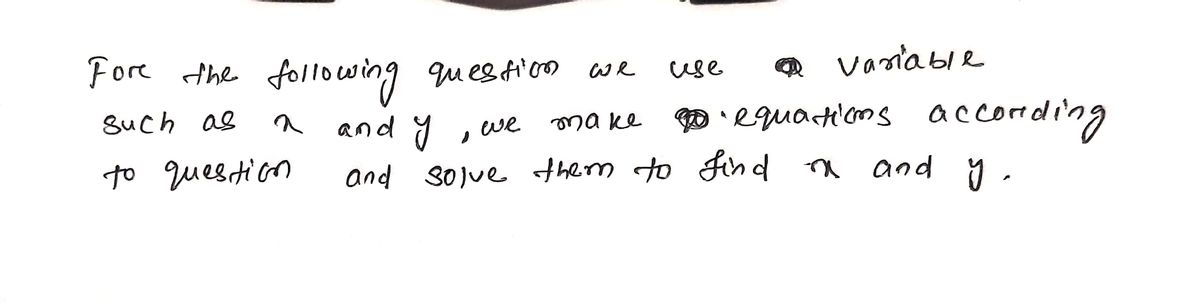 Fore the following question we use variable
such as x and y, we make equations according
to question and solve them to find x and y.